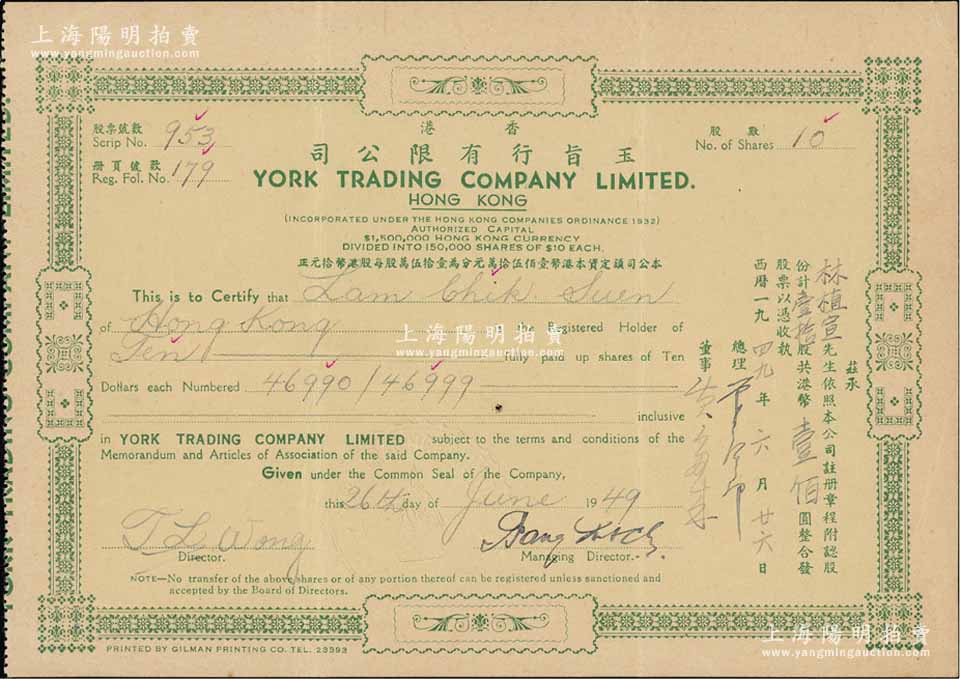 上海陽明拍賣
www.yangmingauction.com
股票號數
Scrip No. 953
册頁號數
Reg. Fol. No. 179
港香
股數
No. of Shares 10
司公限有行旨玉
YORK TRADING COMPANY LIMITED.
HONG KONG
(INCORPORATED UNDER THE HONG KONG COMPANIES ORDINANCE 1932)
AUTHORIZED CAPITAL
$1,500,000 HONG KONG CURRENCY
DIVIDED INTO 150,000 SHARES OF $10 EACH.
正元拾幣港股每股萬伍拾壹為分元萬拾伍佰壹幣港本資定額司公本
This is to Certify that Lam Chik Suen
of Hong Kong is the Registered Holder of
Ten fully paid up shares of Ten
Dollars each Numbered 46990/46999
inclusive
in YORK TRADING COMPANY LIMITED subject to the terms and conditions of the
Memorandum and Articles of Association of the said Company.
Given under the Common Seal of the Company,
this 26th day of June 1949
T L Wong
Director.
Managing Director.
NOTE—No transfer of the above shares or of any portion thereof can be registered unless sanctioned and
accepted by the Board of Directors.
茲承
林植宣先生依照本公司註册章程附認股
份計壹拾股共港幣壹佰圓整合發
股票以憑收執
西曆一九四九年六月廿六日
總理
董事
PRINTED BY GILMAN PRINTING CO. TEL. 23393
上海陽明拍賣
www.yangmingauction.com
上海陽明拍賣
www.yangmingauction.com